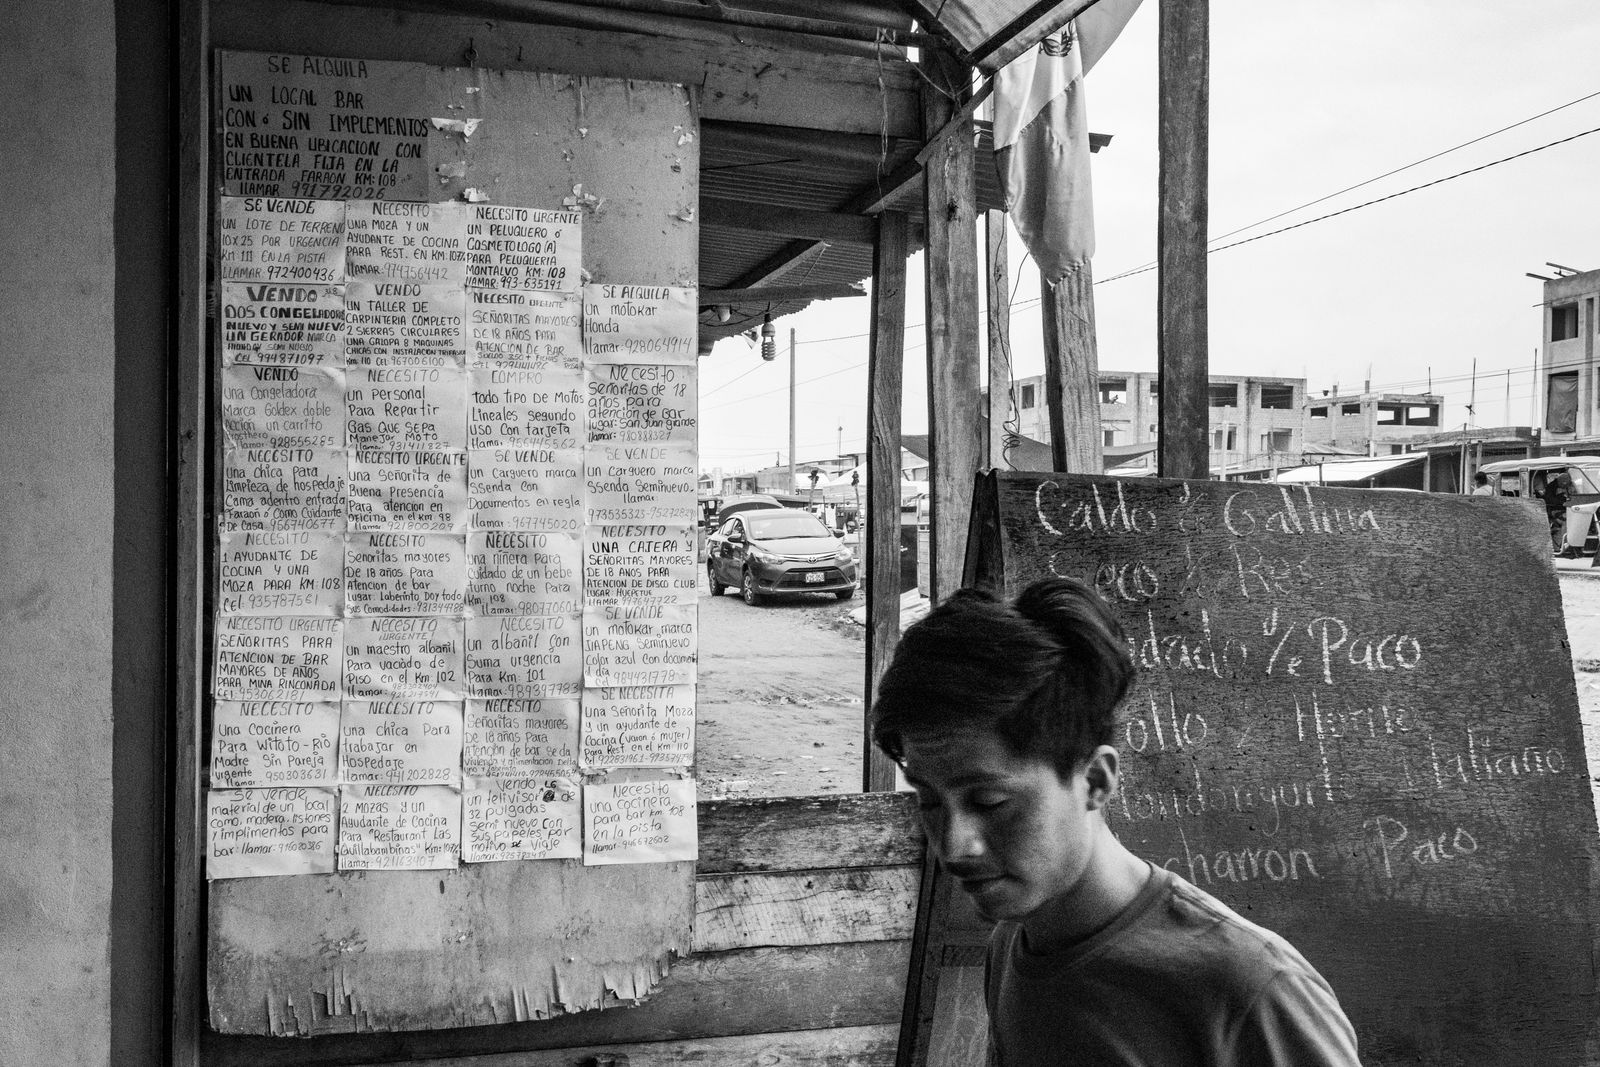 SE ALQUILA
UN LOCAL BAR
CON ó SIN IMPLEMENTOS
EN BUENA UBICACION CON
CLIENTELA FIJA EN LA
ENTRADA FARAON KM: 108
llAMAR 991792026
SE VENDE
UN LOTE DE TERRENO
10x25 POR URGENCIA
KM 111 EN LA PISTA
LLAMAR: 972400436
NECESITO
UNA MOZA Y UN
AYUDANTE DE COCINA
PARA REST. EN KM: 107
llamar: 974756442
NECESITO URGENTE
UN PELUQUERO ó
COSMETOLOGO (A)
PARA PELUQUERIA
MONTALVO KM: 108
llAMAR: 993-635191
VENDO
DOS CONGELADORA
NUEVO Y SEMI NUEVO
UN GERADOR MARCA
SEMI NUEVO
CEL 974871097
VENDO
UN TALLER DE
CARPINTERIA COMPLETO
2 SIERRAS CIRCULARES
UNA GALOPA 8 MAQUINAS
CHICAS CON INSTALACION TRIFASICA
KM 110 CEL: 967006100
NECESITO URGENTE
SEÑORITAS MAYORES
DE 18 AÑOS PARA
ATENCION DE BAR
SUELDO 350 + FICHAS
SE ALQUILA
Un motokar
Honda
llamar: 928064914
VENDO
Una Congeladora
Marca Goldex doble
Accion un carrito
llamar 928555285
NECESITO
Un personal
Para Repartir
Gas que sepa
Manejar Moto
llamar: 931411827
COMPRO
todo tipo De Motos
Lineales segundo
Uso Con tarjeta
llamar: 956445562
Necesito
Señoritas de 18
años para
atención de Bar
lugar: San Juan grande
llamar: 980888327
NECESITO
Una chica Para
Limpieza de hospedaje
Cama adentro entrada
Faraon ó Como Cuidante
De Casa 956740677
NECESITO URGENTE
Una Señorita De
Buena Presencia
Para atencion en
oficina en el km 98
llamar: 921800209
SE VENDE
Un Carguero marca
Ssenda Con
Documentos en regla
llamar: 967745020
SE VENDE
Un Carguero marca
Ssenda Seminuevo.
llamar:
973535323-95272829
NECESITO
1 AYUDANTE DE
COCINA Y UNA
MOZA PARA KM: 108
Cel: 935787561
NECESITO
Señoritas mayores
De 18 años Para
Atencion de bar
lugar: Laberinto Doy todo
Sus Comodidades: 931344788
NECESITO
Una niñera Para
Cuidado de un bebe
turno noche Para
Km. 108
llamar: 980770601
NECESITO
UNA CAJERA Y
SEÑORITAS MAYORES
DE 18 AÑOS PARA
ATENCION DE DISCO CLUB
LUGAR: HUEPETUE
LLAMAR 997647722
NECESITO URGENTE
SEÑORITAS PARA
ATENCION DE BAR
MAYORES DE AÑOS
PARA MINA RINCONADA
CEL: 953062181
NECESITO
¡URGENTE!
Un maestro albañil
Para vaciado de
Piso en el Km: 102
NECESITO
Un albañil Con
Suma urgencia
Para Km: 101
llamar: 989397783
SE VENDE
Un motokar marca
JIAPENG Seminuevo
Color azul Con documen
al día
llamar: 984431778
NECESITO
Una Cocinera
Para Witoto - Rio
Madre Sin Pareja
urgente
llamar: 950303631
NECESITO
Una chica Para
trabajar en
Hospedaje
llamar: 941202828
NECESITO
Señoritas mayores
De 18 años Para
Atención de bar Se da
Vivienda y alimentacion
SE NECESITA
Una Señorita Moza
y un ayudante de
Cocina (varon ó mujer)
Para Rest en el Km 110
Se Vende
material de un local
como, madera, listones
y implimentos para
bar: llamar: 916020386
NECESITO
2 MOZAS Y UN
Ayudante de Cocina
Para "Restaurant Las
Quillabambinas" Km: 107
llamar: 921163407
Vendo LG
un telivisor de
32 pulgadas
semi nuevo con
sus papeles por
motivo de viaje
llamar: 925783419
Necesito
una cocinera
para bar km 108
en la pista
llamar: 946672602
Caldo de Gallina
Seco de Res
y
udado /e Paco
ollo y Horne
Italiano
charron Paco